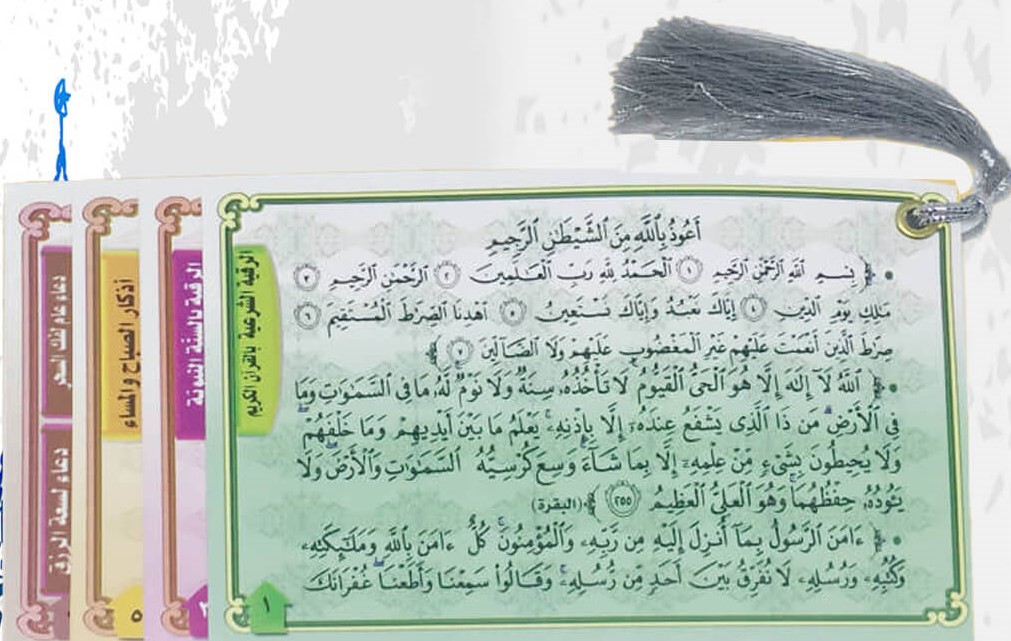 أَعُوذُ بِٱللَّهِ مِنَ ٱلشَّيْطَٰنِ ٱلرَّجِيمِ
• ﴿ بِسْمِ ٱللَّهِ ٱلرَّحْمَٰنِ ٱلرَّحِيمِ ١ ٱلْحَمْدُ لِلَّهِ رَبِّ ٱلْعَٰلَمِينَ ٢ ٱلرَّحْمَٰنِ ٱلرَّحِيمِ ٣
مَٰلِكِ يَوْمِ ٱلدِّينِ ٤ إِيَّاكَ نَعْبُدُ وَإِيَّاكَ نَسْتَعِينُ ٥ ٱهْدِنَا ٱلصِّرَٰطَ ٱلْمُسْتَقِيمَ ٦
صِرَٰطَ ٱلَّذِينَ أَنْعَمْتَ عَلَيْهِمْ غَيْرِ ٱلْمَغْضُوبِ عَلَيْهِمْ وَلَا ٱلضَّآلِّينَ ٧ ﴾
• ﴿ ٱللَّهُ لَآ إِلَٰهَ إِلَّا هُوَ ٱلْحَىُّ ٱلْقَيُّومُ لَا تَأْخُذُهُۥ سِنَةٌ وَلَا نَوْمٌ لَّهُۥ مَا فِى ٱلسَّمَٰوَٰتِ وَمَا
فِى ٱلْأَرْضِ مَن ذَا ٱلَّذِى يَشْفَعُ عِندَهُۥٓ إِلَّا بِإِذْنِهِۦ يَعْلَمُ مَا بَيْنَ أَيْدِيهِمْ وَمَا خَلْفَهُمْ
وَلَا يُحِيطُونَ بِشَىْءٍ مِّنْ عِلْمِهِۦٓ إِلَّا بِمَا شَآءَ وَسِعَ كُرْسِيُّهُ ٱلسَّمَٰوَٰتِ وَٱلْأَرْضَ وَلَا
يَـُٔودُهُۥ حِفْظُهُمَا وَهُوَ ٱلْعَلِىُّ ٱلْعَظِيمُ ٢٥٥ ﴾ (البقرة)
• ﴿ ءَامَنَ ٱلرَّسُولُ بِمَآ أُنزِلَ إِلَيْهِ مِن رَّبِّهِۦ وَٱلْمُؤْمِنُونَ كُلٌّ ءَامَنَ بِٱللَّهِ وَمَلَٰٓئِكَتِهِۦ
وَكُتُبِهِۦ وَرُسُلِهِۦ لَا نُفَرِّقُ بَيْنَ أَحَدٍ مِّن رُّسُلِهِۦ وَقَالُوا۟ سَمِعْنَا وَأَطَعْنَا غُفْرَانَكَ
١
الرقية الشرعية بالقرآن الكريم
الرقية بالسنة النبوية
أذكار الصباح والمساء
٥
دعاء عام لفك السحر
دعاء لسعة الرزق